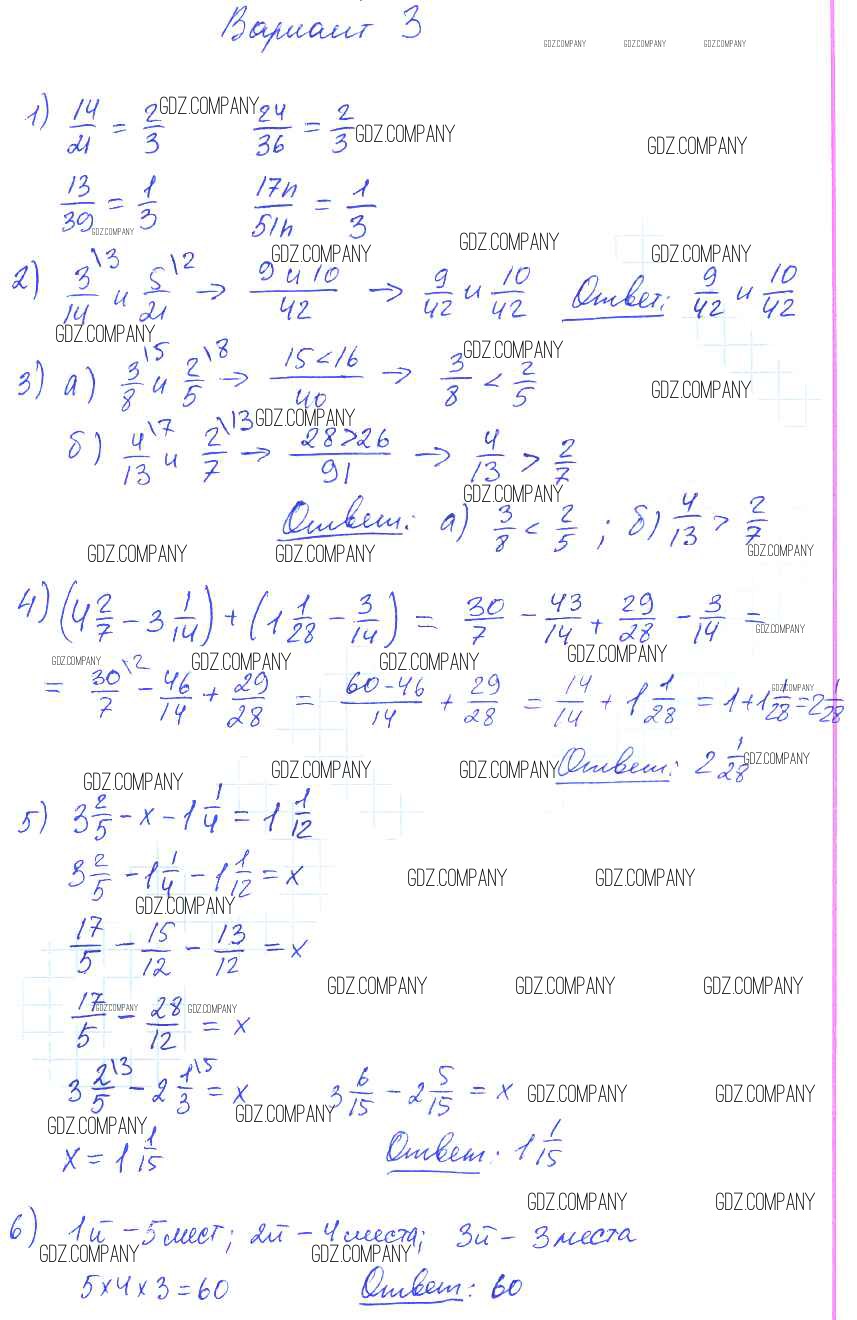 Вариант 3
GDZ.COMPANY GDZ.COMPANY GDZ.COMPANY
1) 14/21 = 2/3 GDZ.COMPANY 24/36 = 2/3 GDZ.COMPANY
GDZ.COMPANY
13/39 = 1/3 17n/51n = 1/3
GDZ.COMPANY
GDZ.COMPANY GDZ.COMPANY GDZ.COMPANY
2) 3/14 \3 и 5/21 \2 → 9 и 10/42 → 9/42 и 10/42 Ответ: 9/42 и 10/42
GDZ.COMPANY
GDZ.COMPANY GDZ.COMPANY
3) а) 3/8 \5 и 2/5 \8 → 15<16/40 → 3/8 < 2/5
GDZ.COMPANY
б) 4/13 \7 и 2/7 \13 → 28>26/91 → 4/13 > 2/7
GDZ.COMPANY
Ответ: а) 3/8 < 2/5 ; б) 4/13 > 2/7
GDZ.COMPANY GDZ.COMPANY GDZ.COMPANY
4) (4 2/7 - 3 1/14) + (1 1/28 - 3/14) = 30/7 - 43/14 + 29/28 - 3/14 =
GDZ.COMPANY
GDZ.COMPANY GDZ.COMPANY GDZ.COMPANY GDZ.COMPANY
= 30/7 \2 - 46/14 + 29/28 = 60-46/14 + 29/28 = 14/14 + 1 1/28 = 1+1 1/28 = 2 1/28
GDZ.COMPANY
Ответ: 2 1/28
GDZ.COMPANY GDZ.COMPANY GDZ.COMPANY GDZ.COMPANY
5) 3 2/5 - x - 1 1/4 = 1 1/12
3 2/5 - 1 1/4 - 1 1/12 = x
GDZ.COMPANY GDZ.COMPANY
GDZ.COMPANY
17/5 - 15/12 - 13/12 = x
GDZ.COMPANY GDZ.COMPANY GDZ.COMPANY
17/5 - 28/12 = x
GDZ.COMPANY GDZ.COMPANY
3 2/5 \3 - 2 1/3 \5 = x 3 6/15 - 2 5/15 = x
GDZ.COMPANY GDZ.COMPANY
GDZ.COMPANY GDZ.COMPANY
x = 1 1/15 Ответ: 1 1/15
GDZ.COMPANY GDZ.COMPANY
6) 1й - 5 мест; 2й - 4 места; 3й - 3 места
GDZ.COMPANY GDZ.COMPANY
5×4×3=60 Ответ: 60